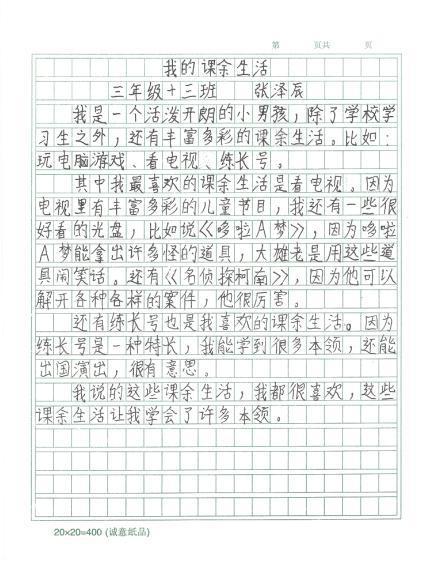 第 页共 页
我的课余生活
三年级十三班 张泽辰
我是一个活泼开朗的小男孩，除了学校学
习生之外，还有丰富多彩的课余生活。比如：
玩电脑游戏、看电视、练长号。
其中我最喜欢的课余生活是看电视。因为
电视里有丰富多彩的儿童节目，我还有一些很
好看的光盘，比如说《哆啦A梦》，因为哆啦
A梦能拿出许多怪的道具，大雄老是用这些道
具闹笑话。还有《名侦探柯南》，因为他可以
解开各种各样的案件，他很厉害。
还有练长号也是我喜欢的课余生活。因为
练长号是一种特长，我能学到很多本领，还能
出国演出，很有意思。
我说的这些课余生活，我都很喜欢，这些
课余生活让我学会了许多本领。
20×20=400 (诚意纸品)